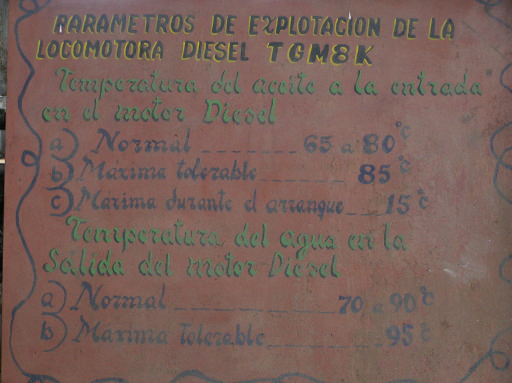 PARAMETROS DE EXPLOTACION DE LA
LOCOMOTORA DIESEL TGM8K
Temperatura del aceite a la entrada
en el motor Diesel
a) Normal _ _ _ _ _ _ _ 65 a 80°C
b) Máxima tolerable _ _ _ _ _ _ 85°C
c) Máxima durante el arranque _ _ 15°C
Temperatura del agua en la
Sálida del motor Diesel
a) Normal _ _ _ _ _ _ _ _ 70 a 90°C
b) Maxima Tolerable _ _ _ _ _ _ 95°C